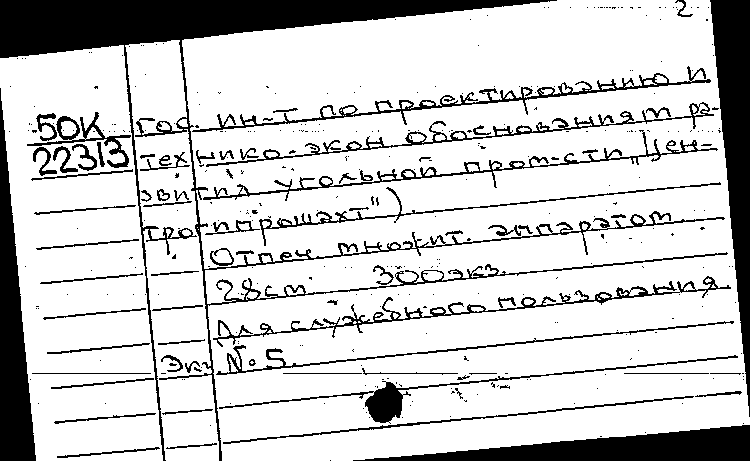 2
50К Гос. ин-т по проектированию и
22313 технико-экон обоснованиям ра-
звития угольной пром-сти „Цен-
трогипрошахт").
Отпеч. множит. аппаратом.
28см 300экз.
Для служебного пользования
Экз. №5.